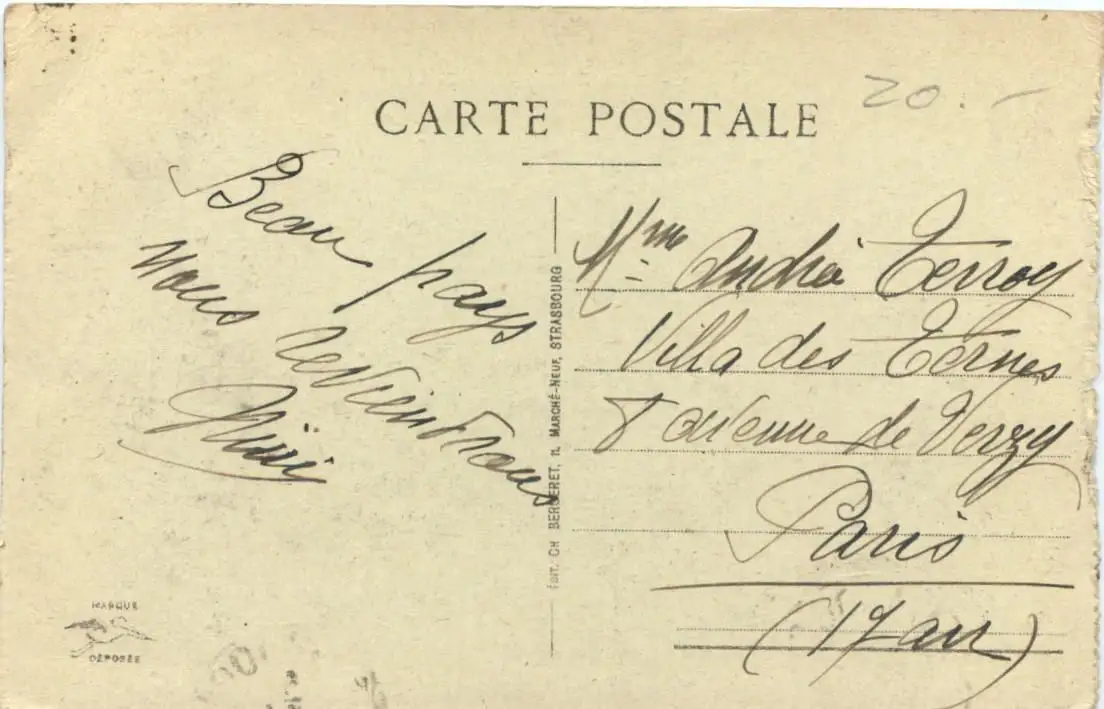 CARTE POSTALE
20.-
Beau pays
nous reviendrons
ÉDIT. CH. BERGERET, 11, MARCHÉ-NEUF, STRASBOURG
Mme André Terroy
Villa des Ternes
8 avenue de Verzy
Paris
(17 arr)
MARQUE
DÉPOSÉE